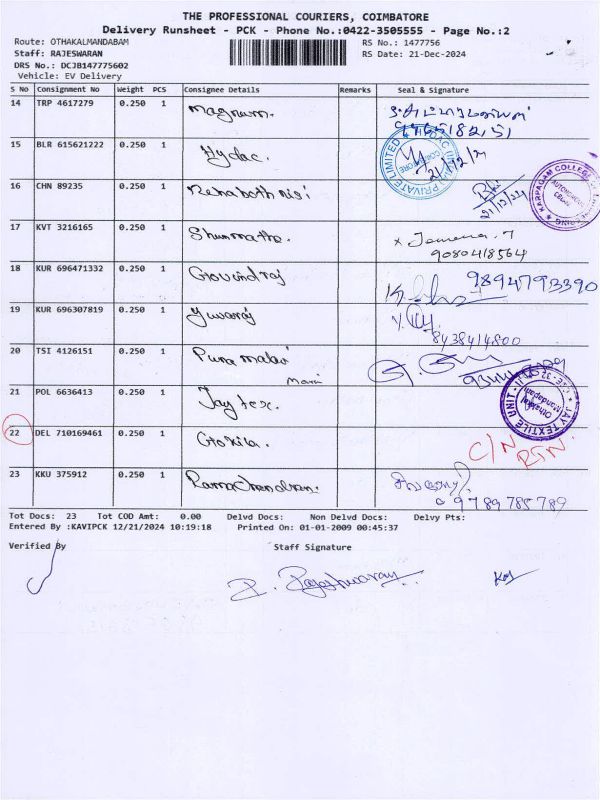 THE PROFESSIONAL COURIERS, COIMBATORE
Delivery Runsheet - PCK - Phone No.:0422-3505555 - Page No.:2
Route: OTHAKALMANDABAM RS No.: 1477756
Staff: RAJESWARAN RS Date: 21-Dec-2024
DRS No.: DCJB147775602
Vehicle: EV Delivery
S No Consignment No Weight PCS Consignee Details Remarks Seal & Signature
14 TRP 4617279 0.250 1 Magnum.
15 BLR 615621222 0.250 1 Hydac. 21/12/24
16 CHN 89235 0.250 1 21/12/24 KARPAGAM COLLEGE AUTONOMOUS
17 KVT 3216165 0.250 1 9080418564
18 KUR 696471332 0.250 1 Govindraj 9894793390
19 KUR 696307819 0.250 1 Yuvaraj 8438414800
20 TSI 4126151 0.250 1
21 POL 6636413 0.250 1 Jay tex. JAY TEXTILE UNIT-II Othakal Mandapam
22 DEL 710169461 0.250 1 Gokila. C/N RTN.
23 KKU 375912 0.250 1 Ramachandran. 9789785789
Tot Docs: 23 Tot COD Amt: 0.00 Delvd Docs: Non Delvd Docs: Delvy Pts:
Entered By :KAVIPCK 12/21/2024 10:19:18 Printed On: 01-01-2009 00:45:37
Verified By Staff Signature
R. Rajeshwaran